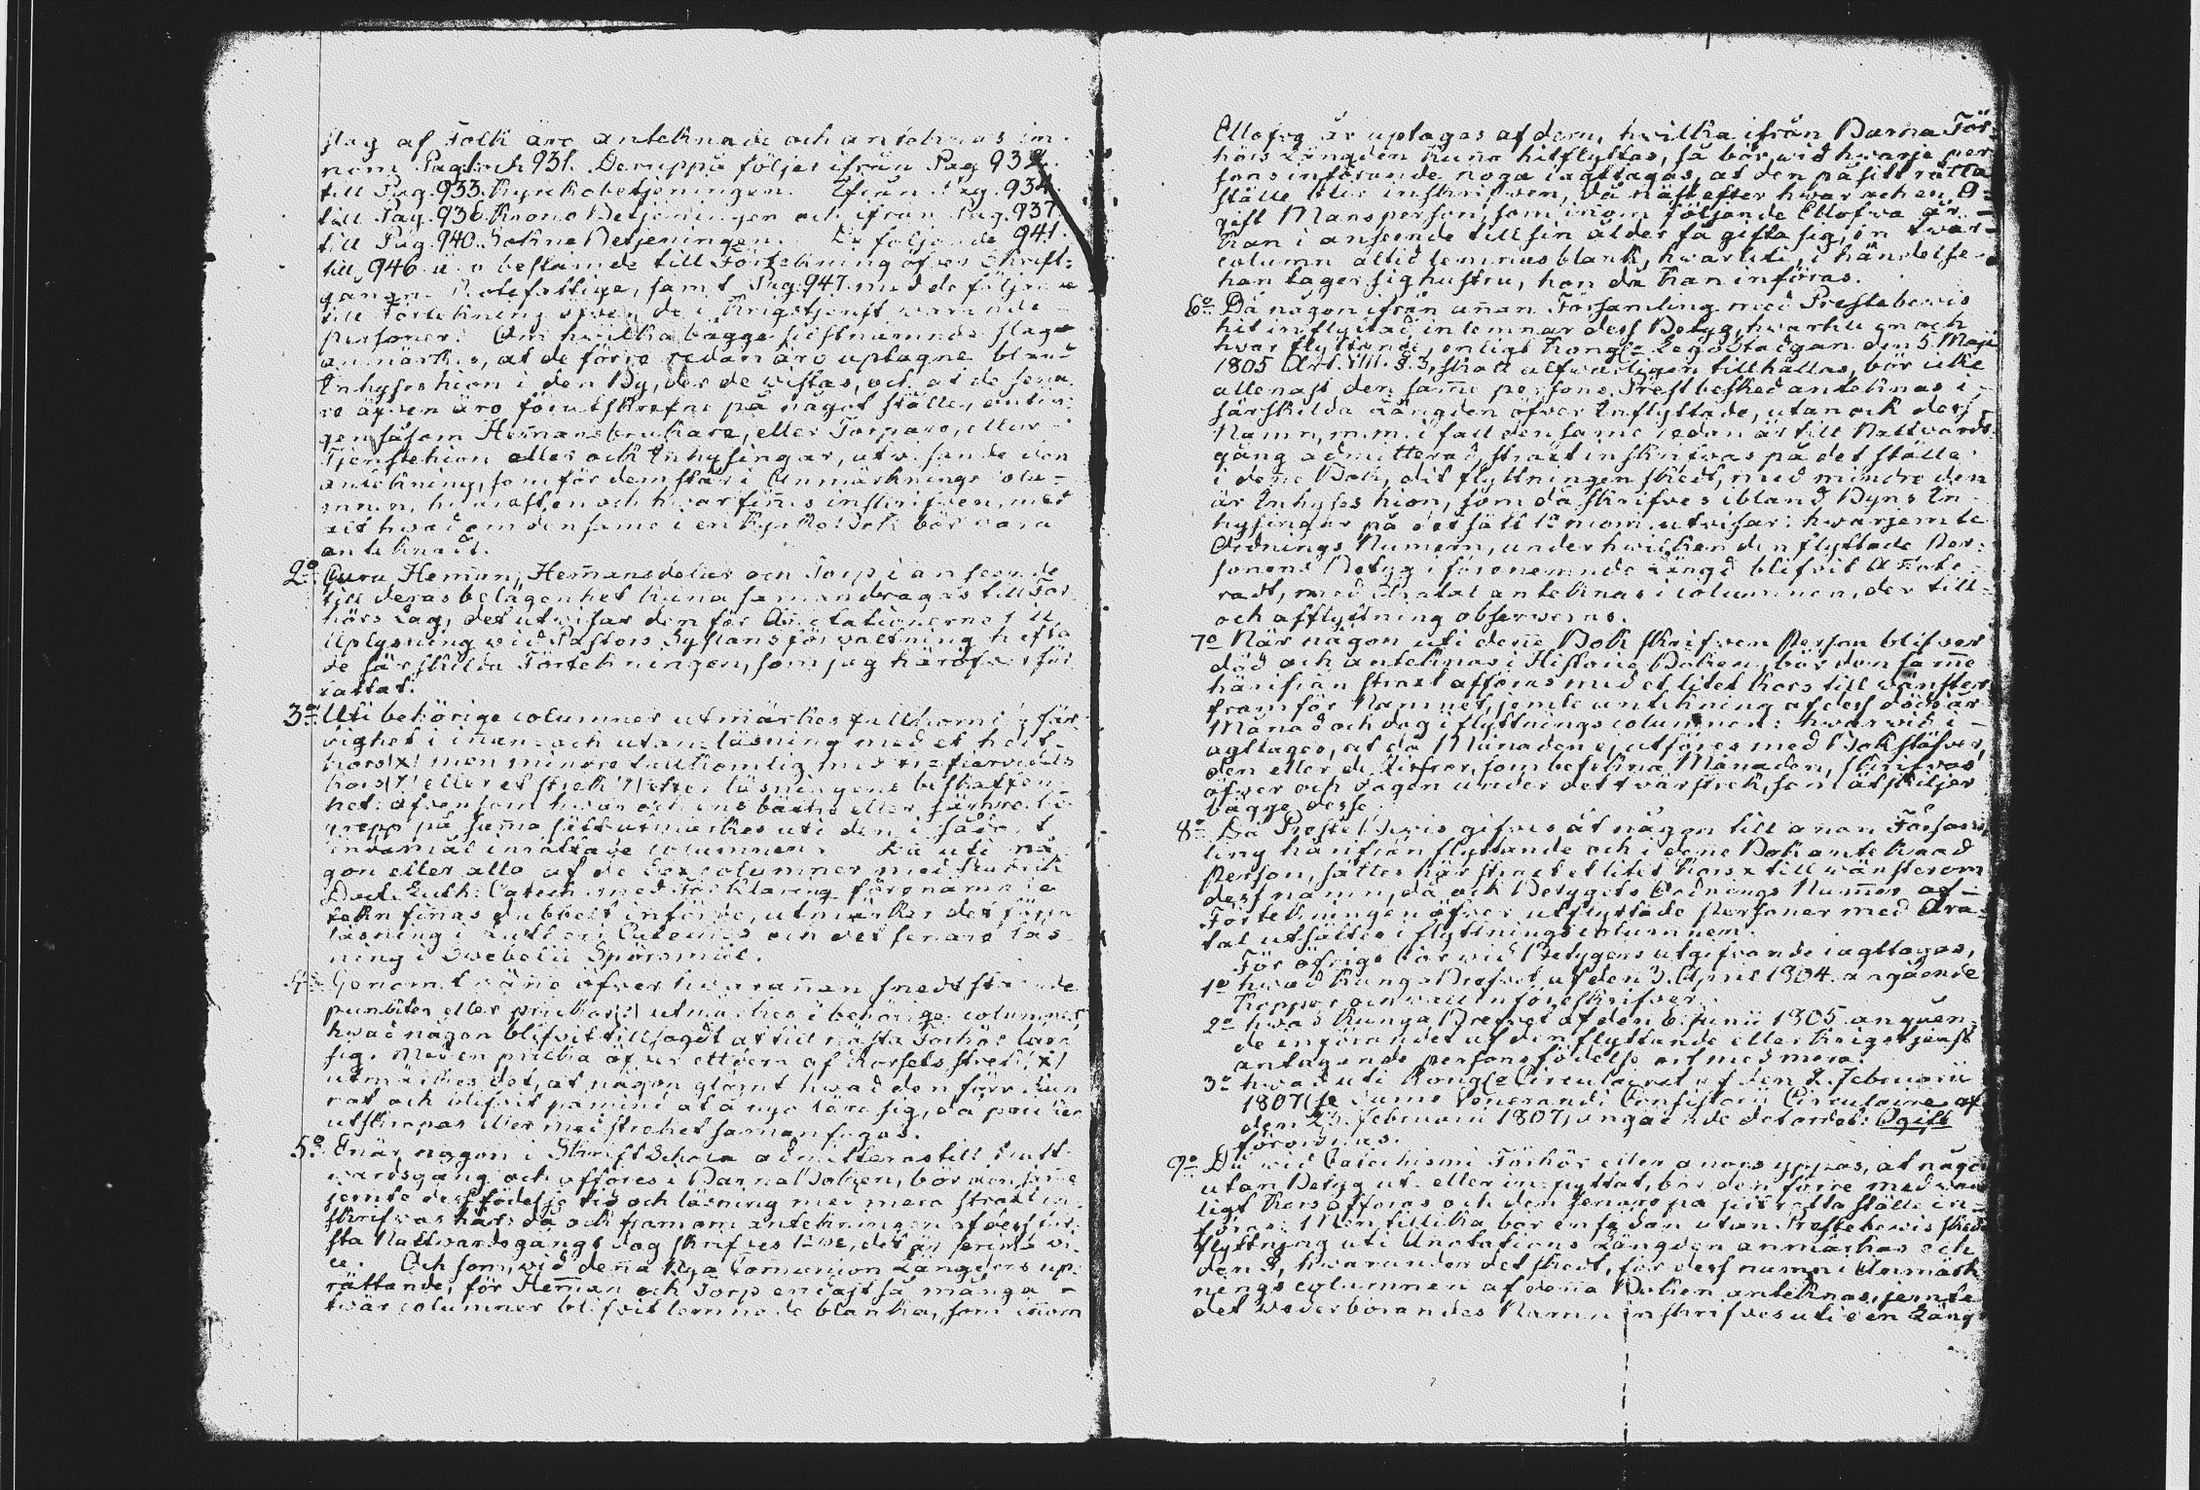 slag af Folk äro antecknade och antecknas in-
nom Pag. och 931. Deruppå följer ifrån Pag 932.
till Pag. 933. Kyrkobetjeningen. Ifrån Pag. 934.
till Pag. 936. Krono Betjeningen och ifrån Pag. 937.
till Pag. 940. Sokne Betjeningen. De följande 941.
till 946 bestämde till Förtekning öfver Skrift-
samt Pag. 947. med de följande
till Förtekning öfver de i Krigstjenst warande
personer. Om hwilka bägge sistnämnde slag
anmärkes, at de förre redan äro uptagne bland
Inhyseshion i den By, der de wistas, och at de sena-
re äfven äro förut skrefne på något ställe, antin-
gen såsom Hem̄ansbrukare, eller Torpare, eller
Tjenstehion eller och Inhysingar, utvisande den
antekning, som för dem står i Anmärknings colu-
mnen, hwarest en och hwar fin̄es inskrifven, med
alt hwad om den sam̄e i en Kyrko Bok bör vara
anteknadt.
2o Huru Hem̄an, Hem̄ansdelar och Torp i anseende
till deras belägenhet kun̄a sam̄andragas till För-
hörs Lag, det utvisar den för An̄otationerne till
Uplysning wid Pastors Syslans förvaltning häfta-
de särskilda Förtekningen, som jag häröfver för-
fattat.
3o Uti behörige columner utmärkes fullkomlig fär-
dighet i in̄an- och utan-läsning med et helt
kors (x) men mindre fullkomlig med trefjerdedels
kors eller et strek efter läsningens beskaffen-
het: äfven som hwar och ens bättre eller sämre be-
grepp på sam̄a sätt utmärkes uti den i
ändamål inrättade columnen. Då uti nå-
gon eller alla af de Sex columner med Rubrik
Doct. Luth. Catech. med Förklaring förenämnde
tekn fin̄as dubbelt införde, utmärker det förra
läsning i Lutheri Cateches och det senare läs-
ning i Swebelii Spörsmål.
4o Genom twän̄e öfver hwaran̄an snedt stående
punkter eller prickar (:) utmärkes i behörige columner
hwad någon blifvit tillsagdt at till nästa Förhör lära
sig. Med en pricka öfver ettdera af Korsets strek (x)
utmärkes det, at någon glömt hwad den förr kun-
nat och blifvit påmint at å nyo lära sig, då pricken
utskrapas eller med streket sam̄anfogas.
5o Enär någon i Skrift Schola admitteras till Natt-
vardsgång och afföres i Barna Boken, bör den sam̄e
jemte dess födelse tid och läsning med mera strax in-
skrifvas här; då ock framom antekningen af dess för-
sta Nattvardsgångs dag skrifves 1:a vice, det är prima vi-
ce. Och som, wid den̄a Nya Com̄union Längdens up-
rättande, för Hem̄an och Torp endast så många
twär columner blifvit lemnade blanka, som in̄om
Ellofva år uptagas af dem, hvilka ifrån Barna För-
hörs Längden kun̄a hitflyttas, så bör, wid hwarje per-
sons införande noga iagttagas, at den på sitt rätta
ställe blir inskrifven, då näst efter hwar och en O-
gift Mansperson, som in̄om följande Ellofva år
kan i anseende till sin ålder få gifta sig, en twär-
column altid lemnas blank, hwaruti, i händelse
han tager sig hustru, hon då kan införas.
6o Då någon ifrån an̄an Församling med Prestebewis
hit inflyttad inlemnar dess Betyg, hwartill en och
hwar flyttande, enligt Kongl. Lego Stadgan den 5. Maji
1805. Art. VIII. §. 3, skall alfwarligen tillhållas, bör icke
allenast den sam̄e persons Prestbesked anteknas i
särskilda Längden öfver Inflyttade, utan ock dess
Namn, m. m. i fall den sam̄e redan är till Nattvards-
gång admitterad, straxt inskrifvas på det ställe
i den̄e Bok, dit flyttningen skedt, med mindre den
är Inhyses hion, som då skrifves ibland Byns In-
hysingar på det sätt 1o mom. utvisar: hwarjemte
Ordnings Numern, under hwilken den flyttade Per-
sonens Betyg i förenemnde Längd blifvit An̄ote-
radt, med Åratal anteknas i columnen, der till-
och afflyttning observeras.
7o När någon uti den̄e Bok skrifven Person blifver
död och anteknas i Historie Boken, bör den sam̄e
härifrån straxt afföras med et litet kors till wänster
framför Namnet, jemte antekning af dess dödsår
Månad och dag i flyttnings columnen: hwarvid i-
agttages, at då Månaden ej utföres med Bokstäfver,
den eller de Ziffror, som betekna Månaden, skrifvas
öfver och dagen under det twärstrek, som åtskiljer
bägge desse.
8o Då Preste Bewis gifves åt någon till an̄an Försam-
ling härifrån flyttande och i den̄e Bok anteknad
Person, sättes här straxt et litet kors x till wänster om
dess namn, då ock Betygets Ordnings Num̄er af
Förtekningen öfver utflyttade personer med Åra-
tal utsättes i flyttnings columnen.
För öfrigt bör wid Betygens utgifvande iagttagas,
1o hwad Kunga Brefvet af den 3. April 1804. angående
Koppor och vaccin föreskrifver.
2o hwad Kunga Brefvet af den 6. Junii 1805. angåen-
de införandet af den flyttande eller Krigstjenst
antagande persons födelse ort med mera.
3o hwad uti Kongl. Circulairet af den 2. Februarii
1807 (se Summe Venerandi Consistorii Circulaire af
den 25. Februarii 1807) angående det ordet: Ogift
förordnas.
9o Då wid Catechismi Förhör eller an̄ars yppas, at någon
utan Betyg ut- eller in-flyttat, bör den förre med van-
ligt kors afföras och den senare på sitt rätta ställe in-
föras: Men tillika bör en sådan utan Prestebewis skedd
flyttning uti Anotations Längden anmärkas och
den §, hwarunder det skedt, för dess namn i Anmärk-
nings columnen af den̄a Boken anteknas, jemte
det wederbörandes Namn inskrifves uti den Läng-